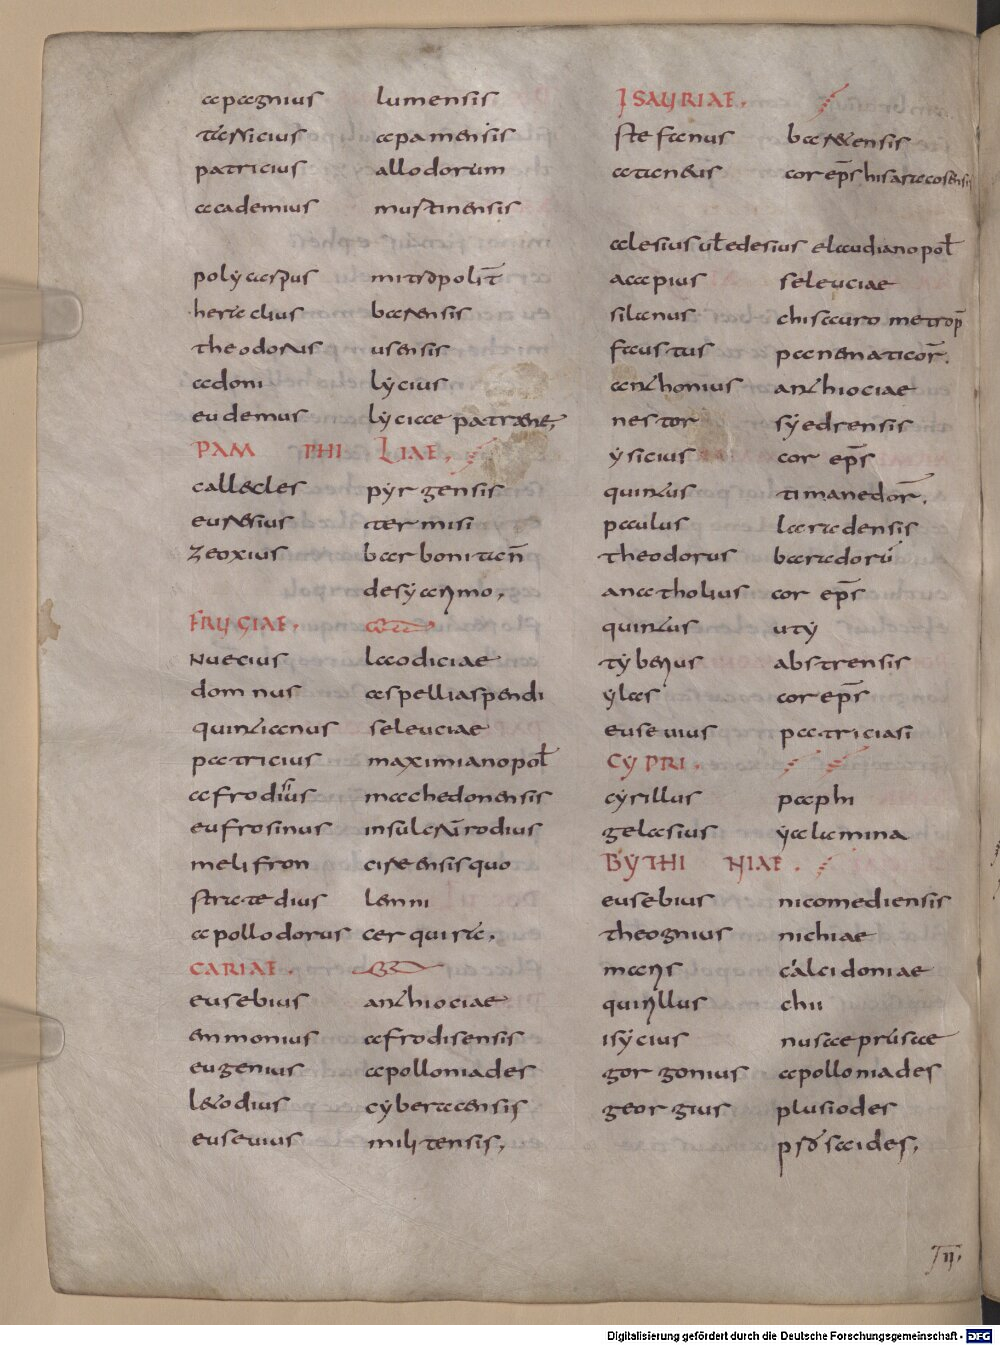 apagnius lumensis
tarsicius apamensis
patricius allodorum
academius mustinensis
polycarpus mitropolit̄
heraclius barensis
theodorus usensis
adoni lycius
eudemus lyciae patrane,
PAMPHILIAE.
callecles pyrgensis
euresius termisi
zeoxius barbonitan̄
desyarymo,
FRUGIAE.
nuecius laodiciae
domnus aspelliaspendi
quintianus seleuciae
patricius maximianopoł
afrodisius machedonensis
eufrosinus insulae rodius
melifron cireensisquo
stratedius lenni
apollodorus cerquira.
CARIAE.
eusebius anthiociae
enmonius afrodisensis
eugenius apolloniades
letodius cyberaensis
eusevius militensis,
ISAURIAE.
stefanus baretensis
ateneus cor ep̄s hisartacosensis
alesius uł edesius claudianopoł
acepius seleuciae
silanus chisauro metrop̄
faustus panematicor̄.
anthonius anthiociae
nestor syedrensis
ysicius cor ep̄s
quintus timanedor̄.
paulus laradensis
theodorus baradorū
anatholius cor ep̄s
quintus uty
tyberius abstrensis
ylas cor ep̄s
eusevius patriciasi
CYPRI.
cyrillus paphi
gelasius yalamina
BYTHINIAE.
eusebius nicomediensis
theognius nichiae
maris calcidoniae
quirillus chii
isycius nusae prusae
gorgonius apolloniades
georgius plusiodes
psd saides,
III.
Digitalisierung gefördert durch die Deutsche Forschungsgemeinschaft - DFG